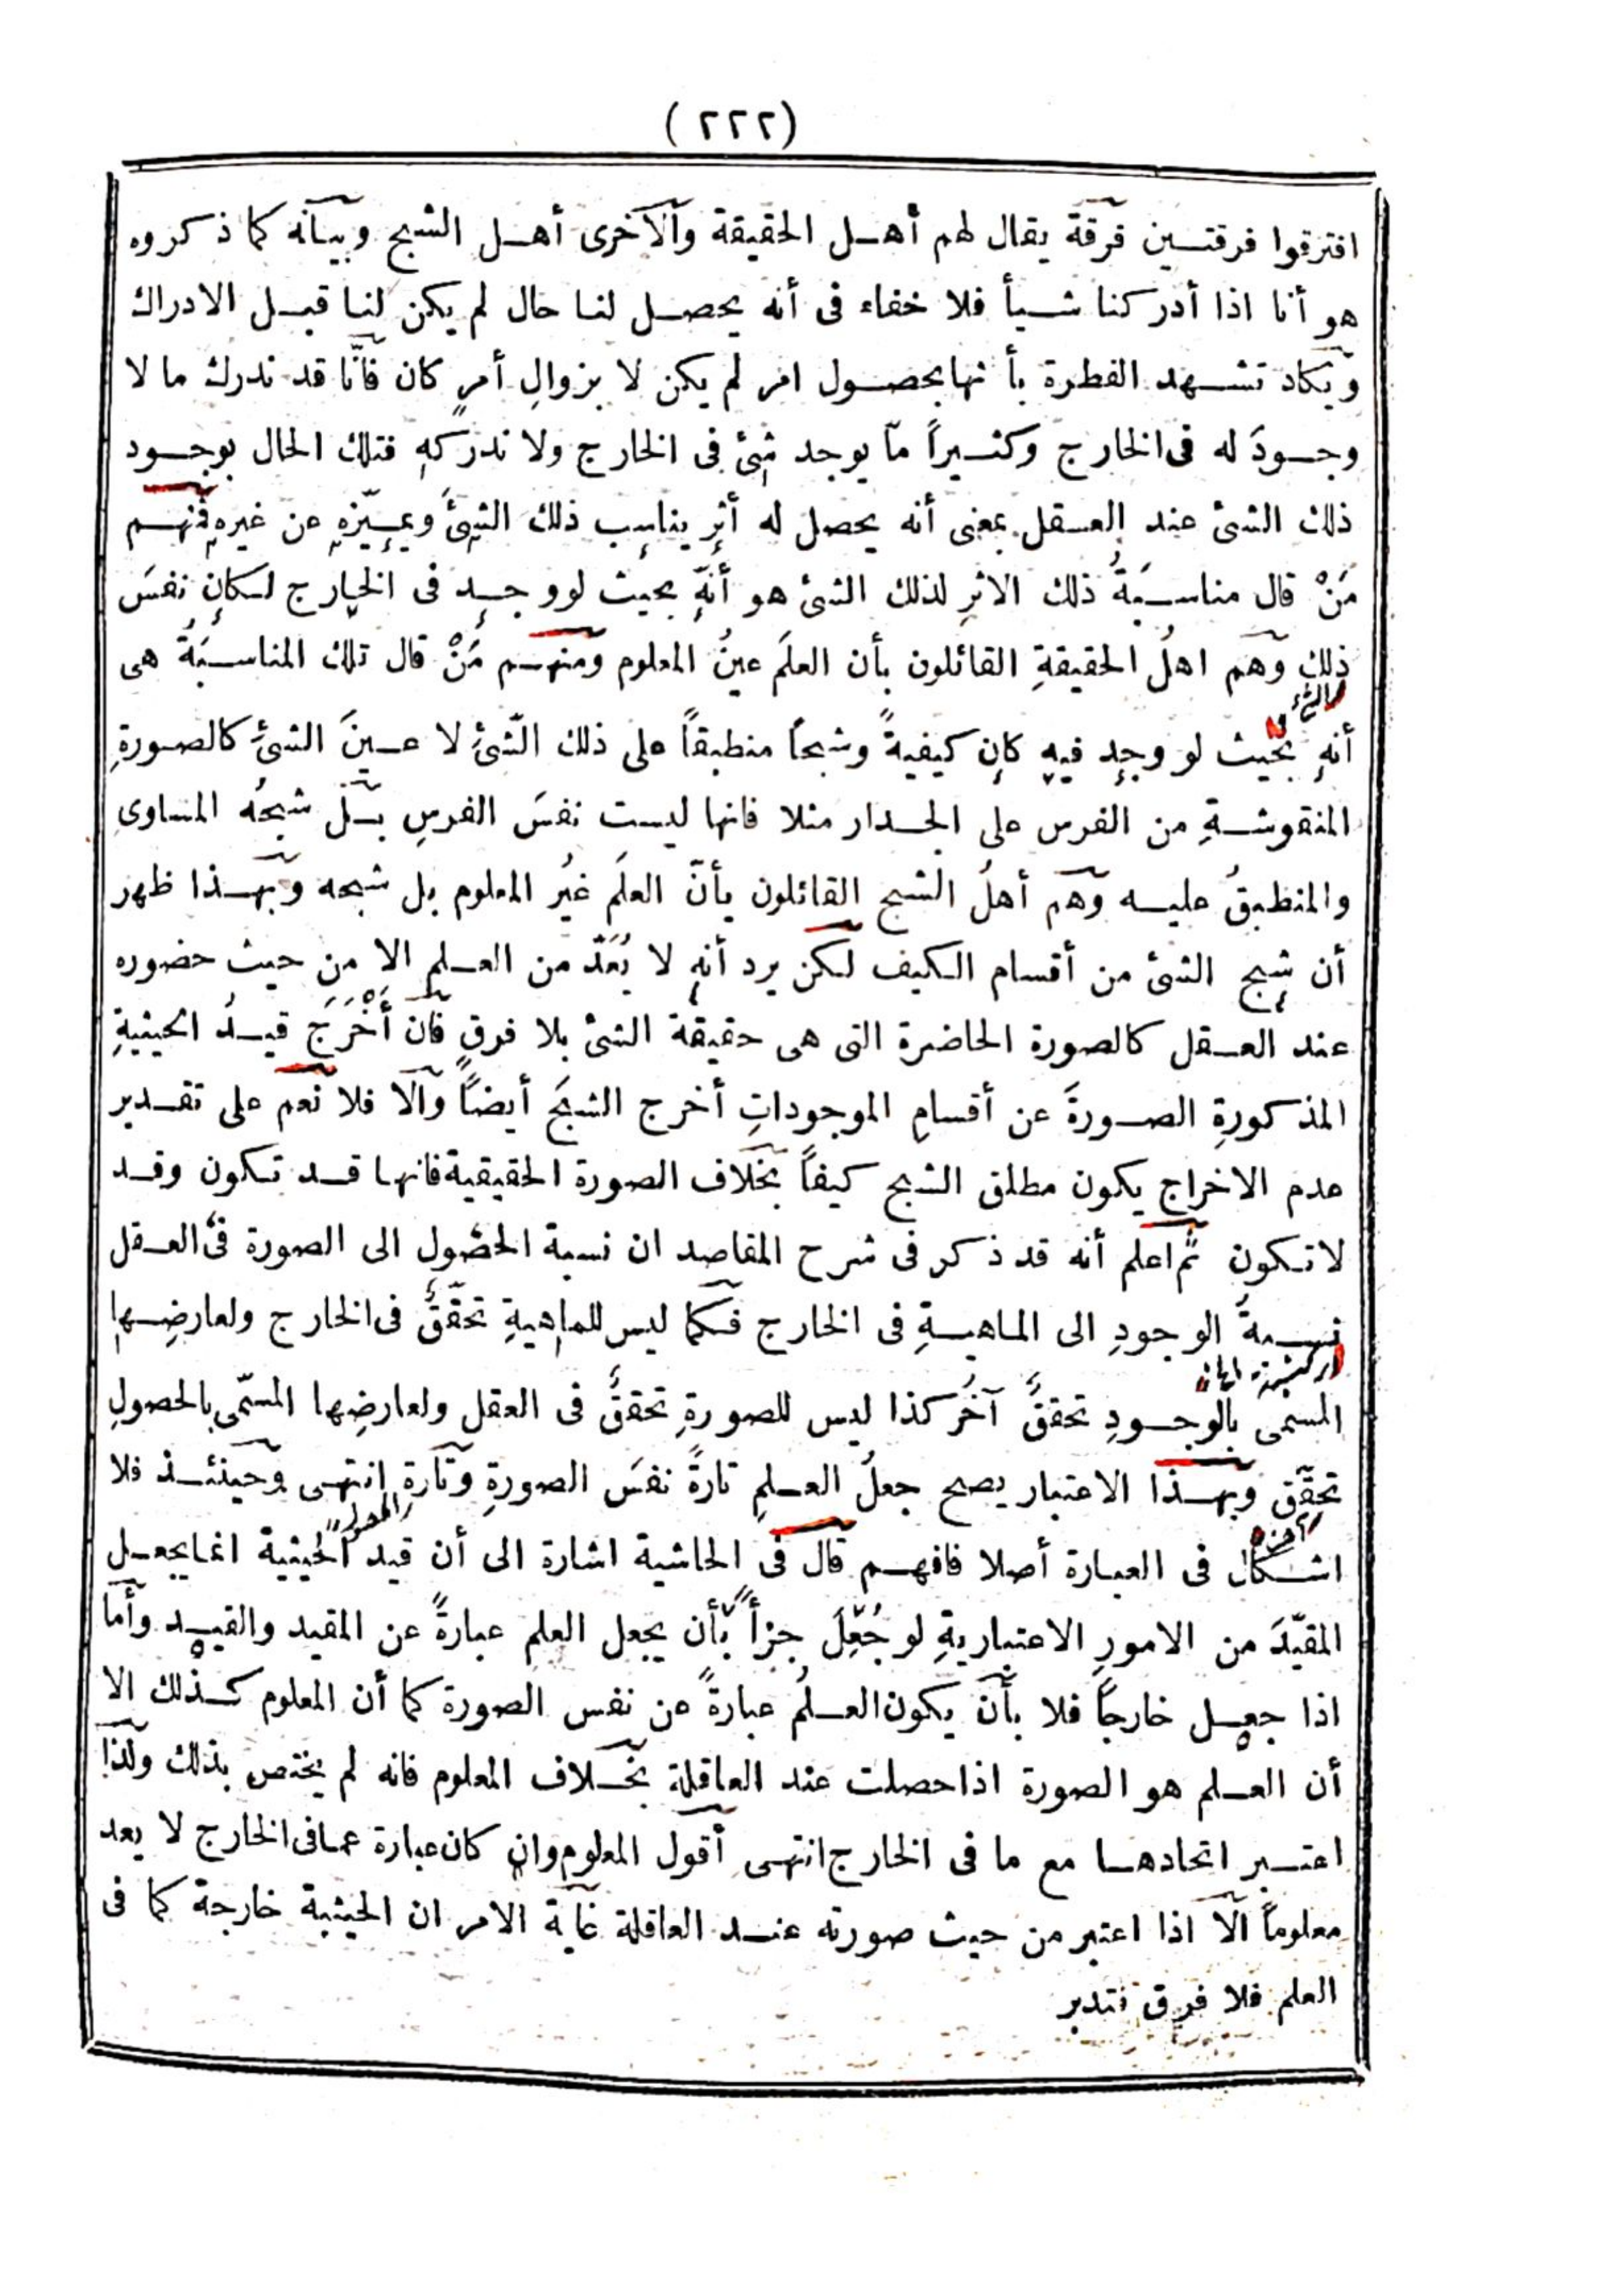 (٢٢٢)
افترقوا فرقتين فرقة يقال لهم أهل الحقيقة والآخرى أهل الشبح وبيانه كما ذكروه
هو أنا اذا أدركنا شيأ فلا خفاء فى أنه يحصل لنا حال لم يكن لنا قبل الادراك
ويكاد تشهد الفطرة بأنها بحصول امر لم يكن لا بزوالِ أمرٍ كان فانّا قد ندرك ما لا
وجودَ له فى الخارج وكثيراً مّا يوجد شئ فى الخارج ولا ندركه فتلك الحال بوجود
ذلك الشئ عند العقل بمعنى أنه يحصل له أثر يناسب ذلك الشئَ ويميّزه عن غيره فمنهم
مَنْ قال مناسبَةُ ذلك الاثرِ لذلك الشئ هو أنّه بحيث لو وجد فى الخارج لكان نفسَ
ذلك وهم اهلُ الحقيقةِ القائلون بأن العلمَ عينُ المعلوم ومنهم مَنْ قال تلك المناسبَةُ هى
الشئ
أنه بحيث لو وجد فيه كان كيفيةً وشبحاً منطبقاً على ذلك الشّئِ لا عينَ الشئِ كالصورةِ
المنقوشةِ من الفرس على الجدار مثلا فانها ليست نفسَ الفرسِ بل شبحُه المساوى
والمنطبقُ عليه وهم أهلُ الشبح القائلون بأنّ العلمَ غيُر المعلوم بل شبحه وبهذا ظهر
أن شبح الشئ من أقسام الكيف لكن يرد أنه لا يُعَدّ من العلم الا من حيث حضوره
عند العقل كالصورة الحاضرة التى هى حقيقة الشئ بلا فرق فان أَخْرَجَ قيدُ الحيثيةِ
المذكورةِ الصورةَ عن أقسامِ الموجوداتِ أخرج الشبحَ أيضاً والّا فلا نعم على تقدير
عدم الاخراج يكون مطلق الشبح كيفاً بخلاف الصورة الحقيقية فانها قد تكون وقد
لا تكون ثم اعلم أنه قد ذكر فى شرح المقاصد ان نسبة الحصول الى الصورة فى العقل
نسبةُ الوجودِ الى الماهيةِ فى الخارج فكما ليس للماهيةِ تحقّقٌ فى الخارج ولعارضِها
المسمى بالوجودِ تحققٌ آخَرُ كذا ليس للصورةِ تحققٌ فى العقل ولعارضِها المسّمى بالحصولِ
تحقّق وبهذا الاعتبار يصح جعلُ العلمِ تارةً نفسَ الصورةِ وتارةِ انتهى وحينئذ فلا
اشكال فى العبارة أصلا فافهم قال فى الحاشية اشارة الى أن قيد الحيثية انما يجعل
المقيّدَ من الامورِ الاعتباريةِ لو جُعِلَ جزأً بأن يجعل العلم عبارةً عن المقيد والقيد وأما
اذا جعل خارجاً فلا بأن يكون العلمُ عبارةً عن نفس الصورة كما أن المعلوم كذلك الا
أن العلم هو الصورة اذا حصلت عند العاقلة بخلاف المعلوم فانه لم يختص بذلك ولذا
اعتبر اتحادها مع ما فى الخارج انتهى أقول المعلوم وان كان عبارة عما فى الخارج لا يعد
معلوماً الّا اذا اعتبر من حيث صورته عند العاقلة غاية الامر ان الحيثية خارجة كما فى
العلم فلا فرق فتدبر